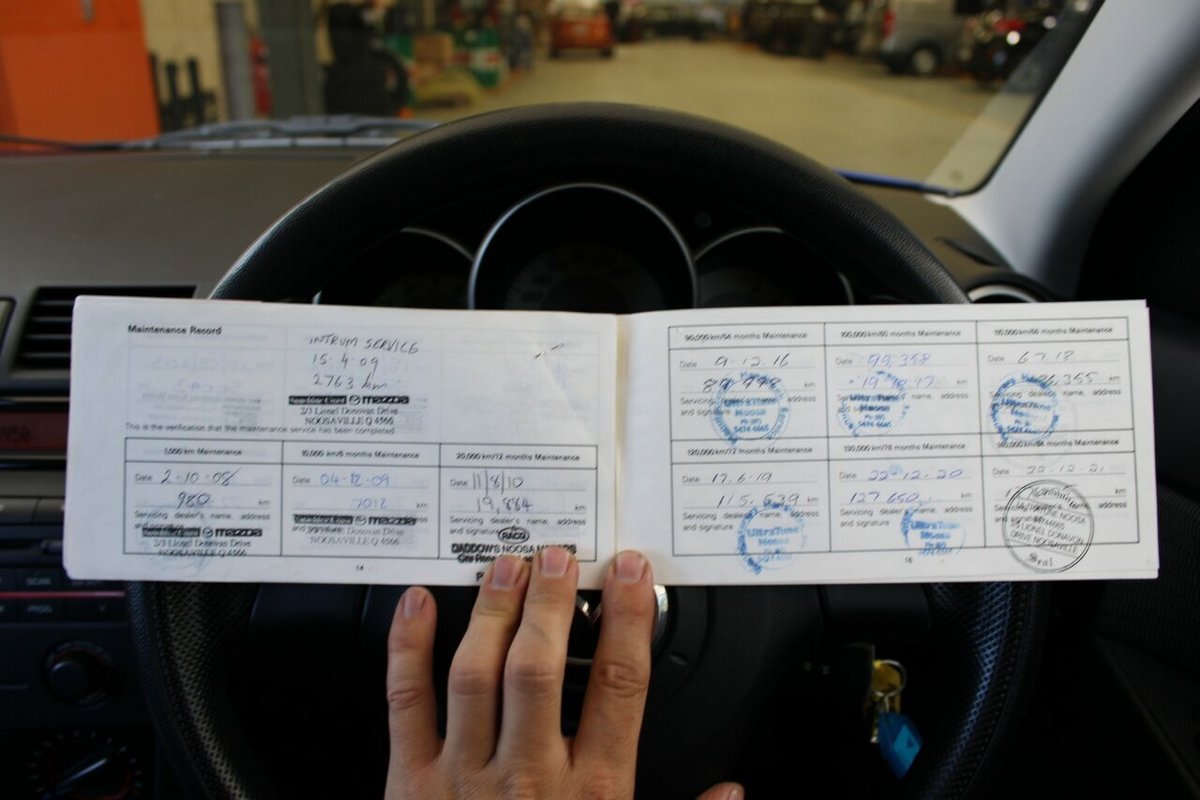 Maintenance Record
INTRUM SERVICE
15-4-09
2763 km
Sunshine Coast mazda
2/3 Lionel Donovan Drive
NOOSAVILLE Q 4566
This is the verification that the maintenance service has been completed.
1,000 km Maintenance
Date 2-10-08
980 km
Servicing dealer's name, address
and signature
mazda
2/3 Lionel Donovan Drive
NOOSAVILLE Q 4566
10,000 km/6 months Maintenance
Date 04-12-09
7012 km
Servicing dealer's name, address
and signature
mazda
2/3 Lionel Donovan Drive
NOOSAVILLE Q 4566
20,000 km/12 months Maintenance
Date 11/8/10
19,884 km
Servicing dealer's name, address
and signature
RACQ
DADDOW'S NOOSA
14
90,000 km/54 months Maintenance
Date 9-12-16
km
Servicing
and signature
UltraTune
Noosa
5474 4665
100,000 km/60 months Maintenance
Date 99,358
km
name, address
UltraTune
Noosa
5474 4665
110,000 km/66 months Maintenance
Date 6 7 18
km
Servicing
address
and signature
UltraTune
Noosa
5474 4665
120,000 km/72 months Maintenance
Date 17.6.19
115,639 km
Servicing dealer's name, address
and signature
UltraTune
Noosa
130,000 km/78 months Maintenance
Date 22-12-20
127650 km
Servicing dealer's name, address
and signature
UltraTune
Noosa
140,000 km/84 months Maintenance
Date
km
Servicing
and signature
NOOSA
LIONEL DONAVON
DRIVE NOOSAVILLE
15
SCAN
PROG